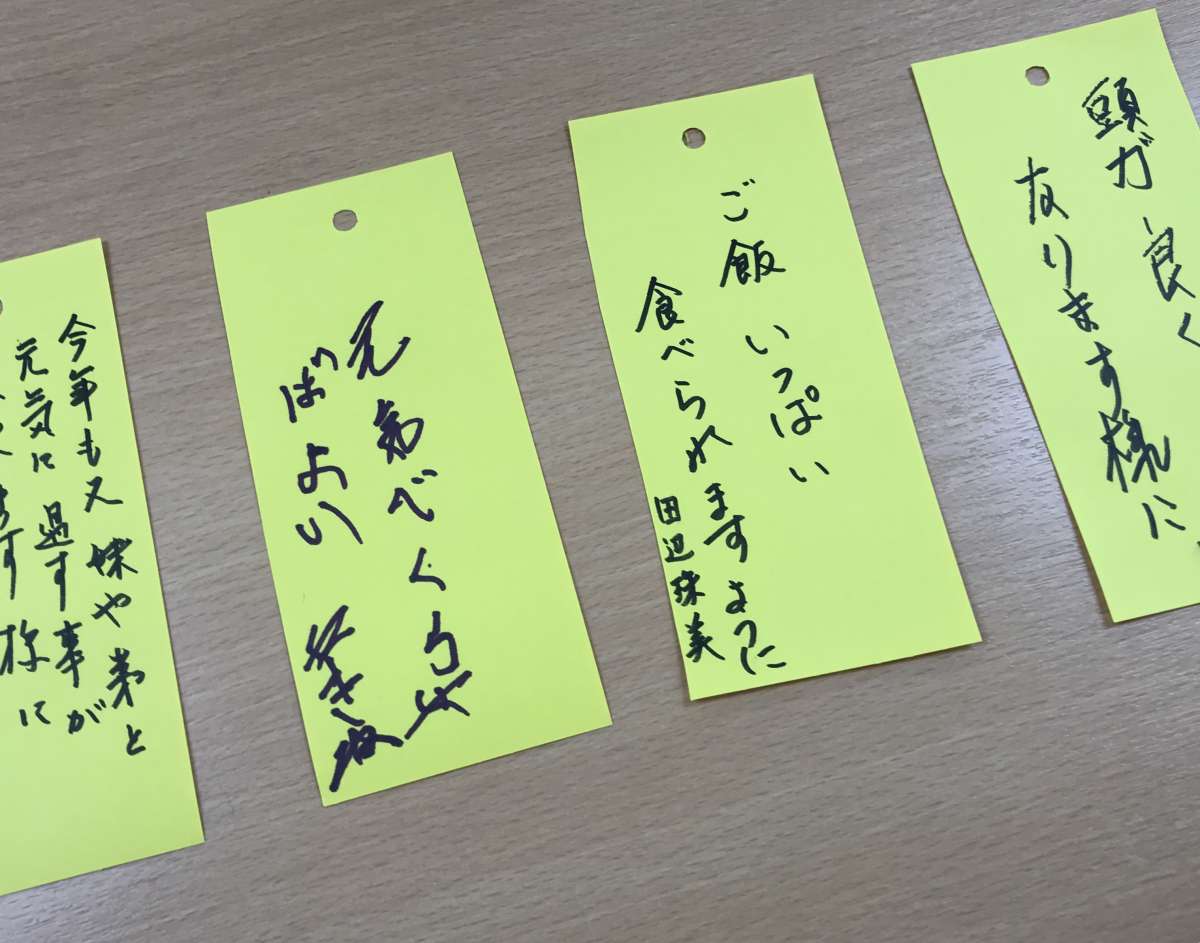 頭が良く
なります様に
ご飯いっぱい
食べられますように
田辺珠美
元
べくら
ばより
今年も又妹や弟と
元気に過す事が
ます様に